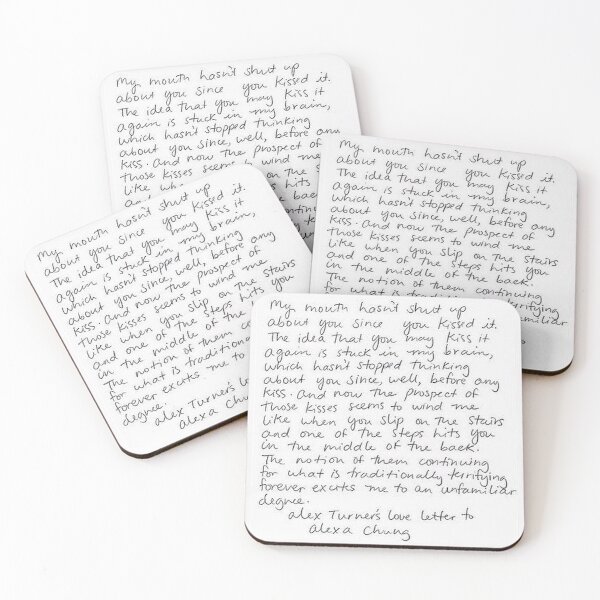 My mouth hasn't shut up
about you since you kissed it.
The idea that you may kiss it
again is stuck in my brain,
which hasn't stopped thinking
about you since, well, before any
kiss. And now the prospect of
those kisses seems to wind me
like when
My mouth hasn't shut up
about you since you kissed it.
The idea that you may kiss it
again is stuck in my brain,
which hasn't stopped thinking
about you since, well, before any
kiss. And now the prospect of
those kisses seems to wind me
like when you slip on the stairs
and one of the steps hits you
in the middle of the back.
The notion of them continuing
for what is traditionally terrifying
My mouth hasn't shut up
about you since you kissed it.
The idea that you may kiss it
again is stuck in my brain,
which hasn't stopped thinking
about you since, well, before any
kiss. And now the prospect of
those kisses seems to wind me
like when you slip on the stairs
and one of the steps hits you
in the middle of the
The notion of them
for what is
forever excites me to
degree.
Alex Turner's love
Alexa
My mouth hasn't shut up
about you since you kissed it.
The idea that you may kiss it
again is stuck in my brain,
which hasn't stopped thinking
about you since, well, before any
kiss. And now the prospect of
those kisses seems to wind me
like when you slip on the stairs
and one of the steps hits you
in the middle of the back.
The notion of them continuing
for what is traditionally terrifying
forever excites me to an unfamiliar
degree.
Alex Turner's love letter to
Alexa Chung